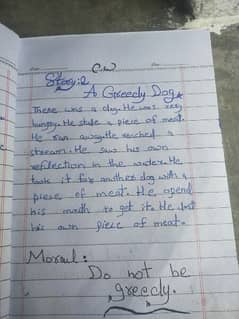 C.W
Story:2
A Greedy Dog
There was a dog. He was very
hungry. He stole a piece of meat.
He ran away. He reached a
stream. He saw his own
reflection in the water. He
took it for another dog with a
piece of meat. He opend
his mouth to get it. He lost
his own piece of meat.
Moral:
Do not be
greedy.